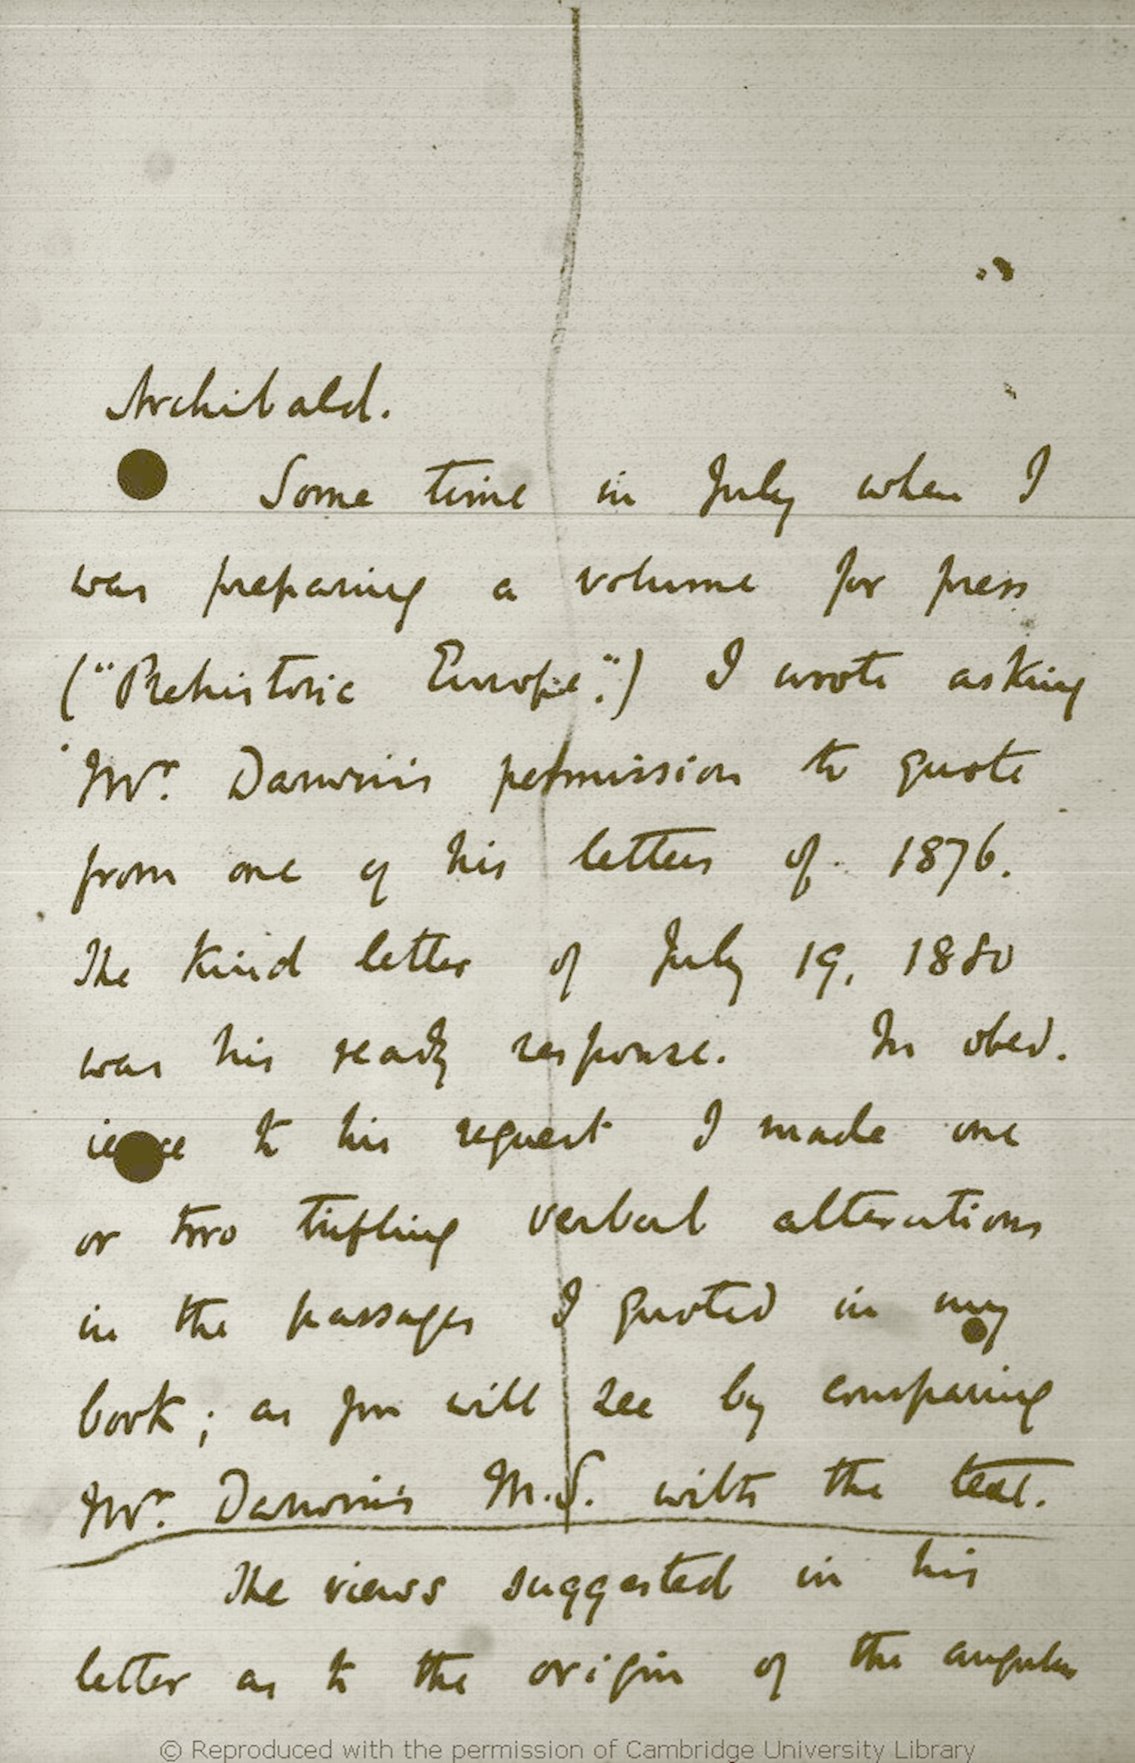 Archibald.
Some time in July when I
was preparing a volume for press
("Prehistoric Europe".) I wrote asking
Mr. Darwin's permission to quote
from one of his letters of 1876.
The kind letter of July 19, 1880
was his ready response. In obed.
ience to his request I made one
or two trifling verbal alterations
in the passages I quoted in my
book; as you will see by comparing
Mr. Darwin's M.S. with the text.
The views suggested in his
letter as to the origin of the angular
© Reproduced with the permission of Cambridge University Library